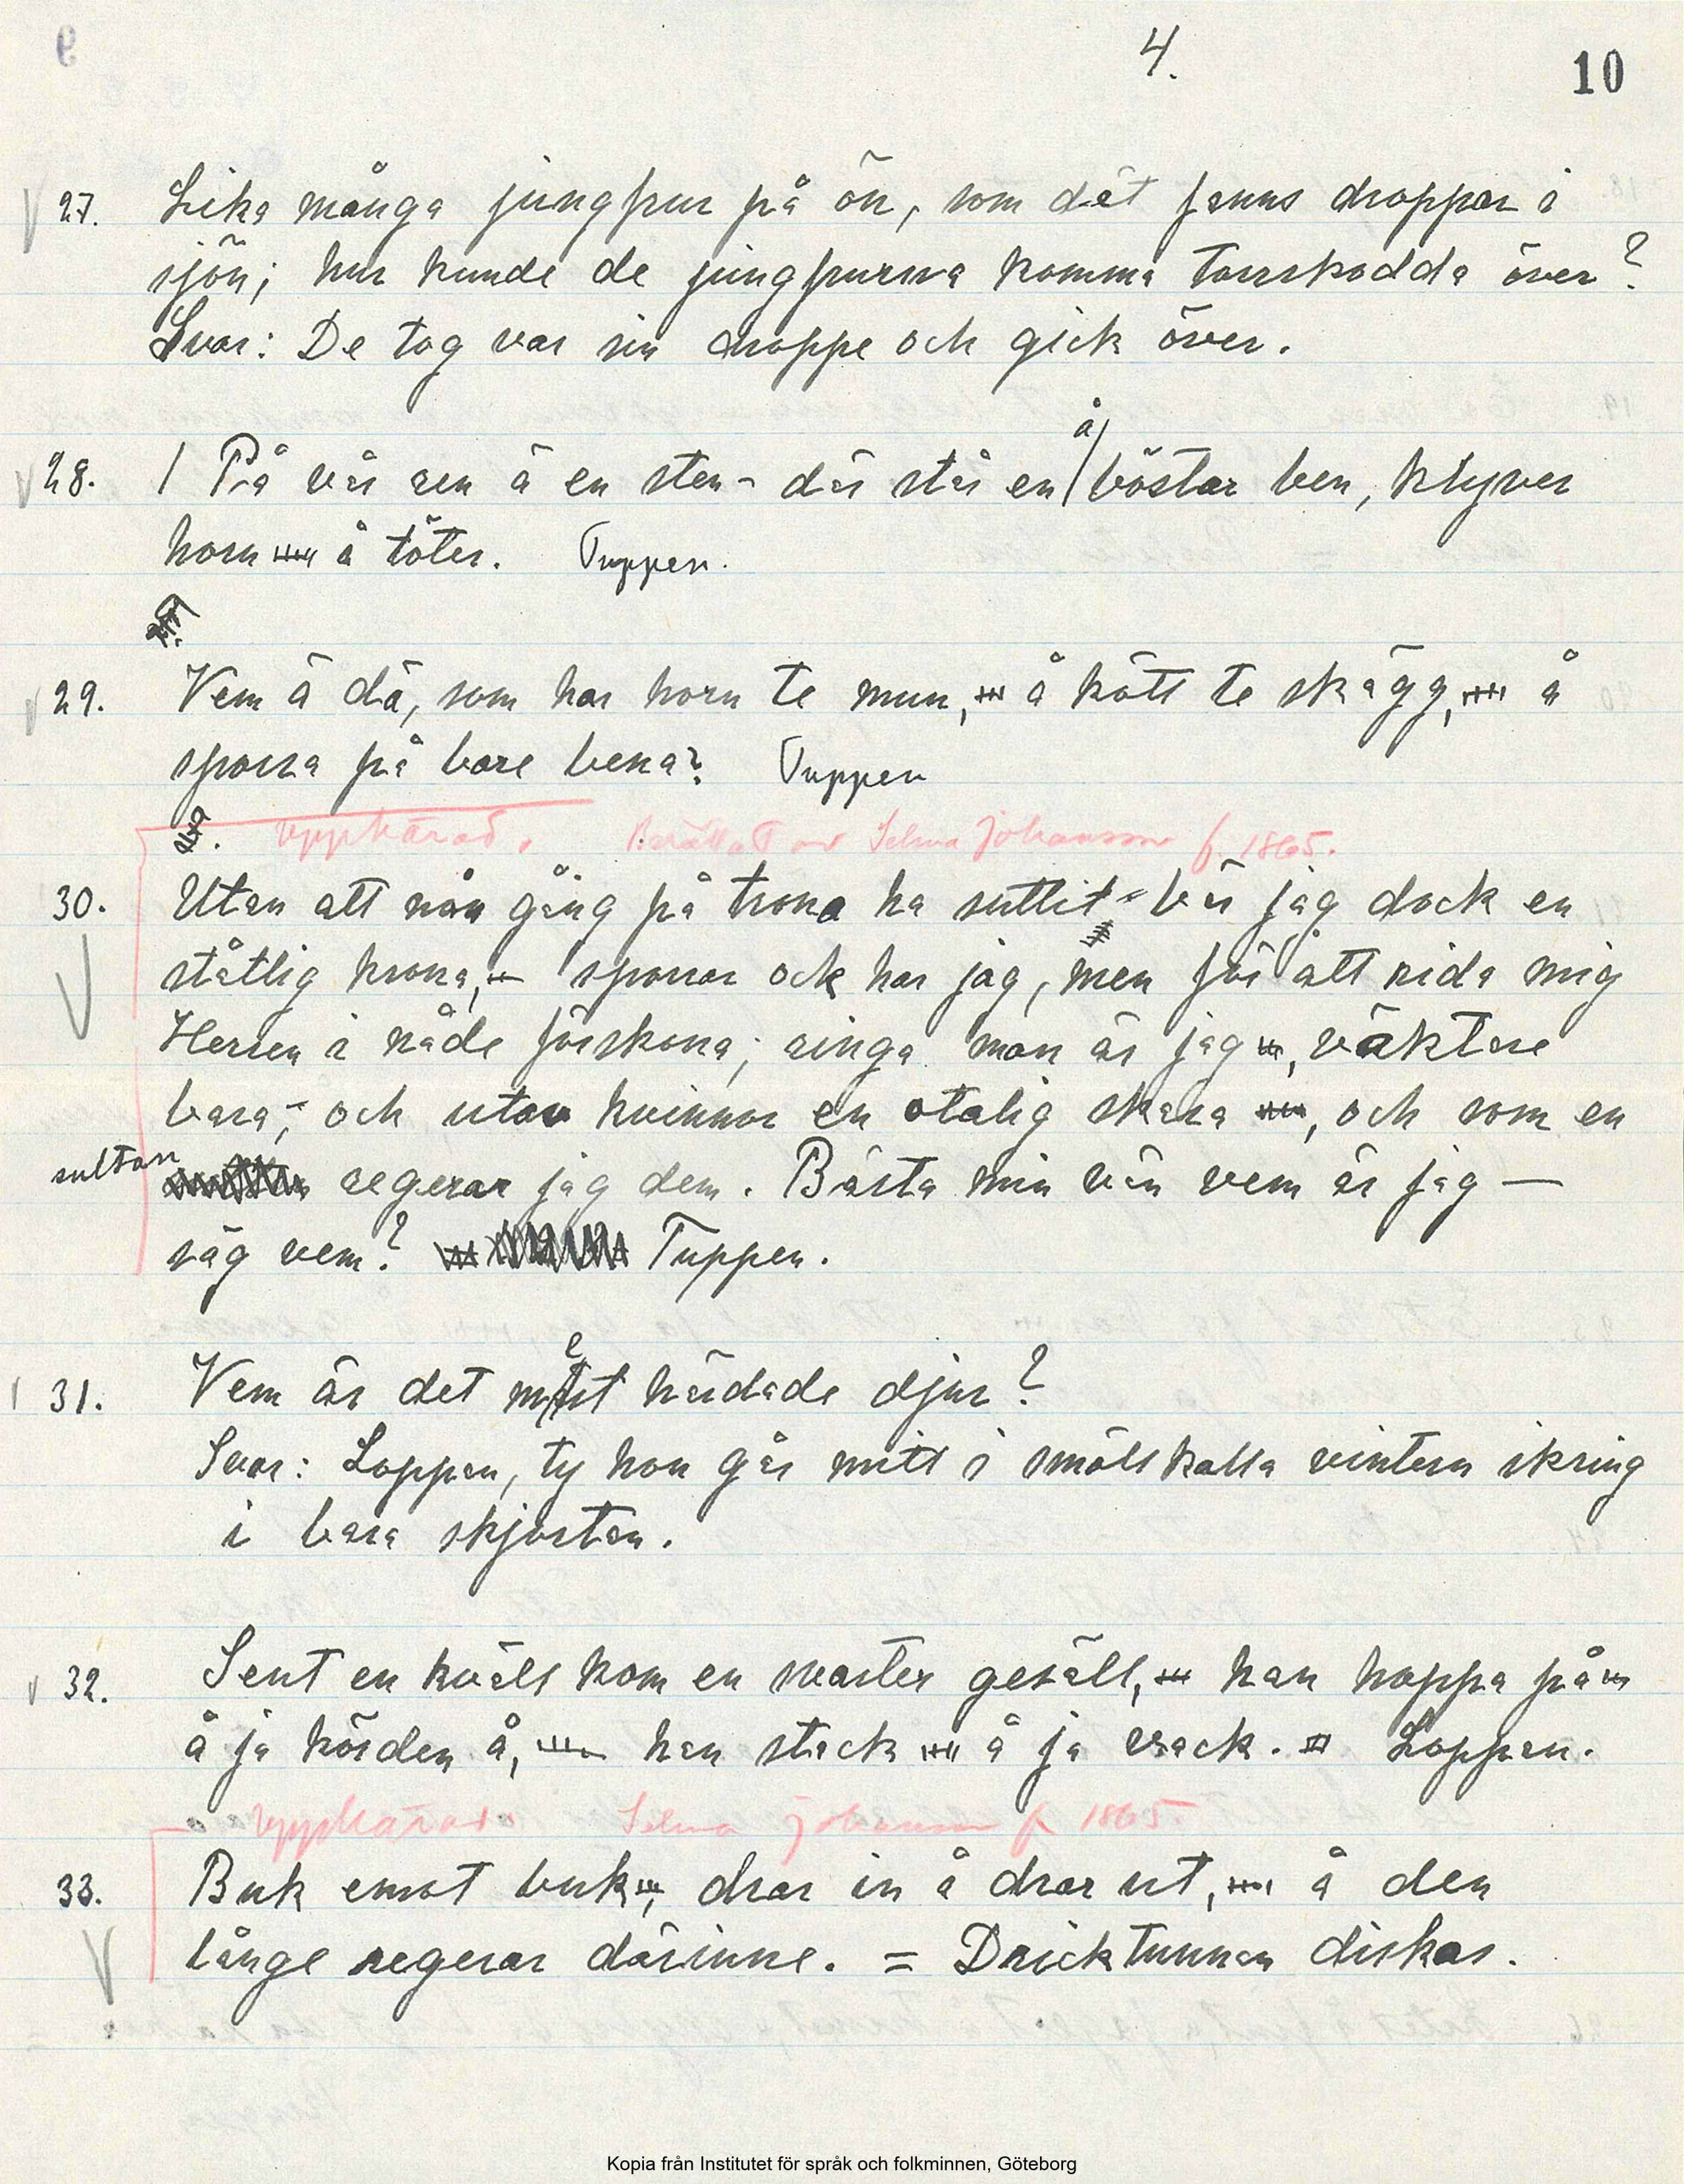 4.
10
27. Lika många jungfrur på ön, som det fanns droppar i
sjön; hur kunde de jungfrurna komma torrskodda över?
Svar: De tog var sin droppe och gick över.
28. / På vår ren ä en sten - där står en å böstar ben, klyver
horn å töter. Tuppen.
29. Vem ä dä, som har horn te mun, å kött te skägg, å
sporra på bare bena? Tuppen
Upphärad. Berättat av Selma Johansson f. 1865.
30. Utan att nån gång på trona ha suttit - bär jag dock en
ståtlig krona, - sporrar ock har jag, men för att rida mig
Herren i nåde förskona; ringa man är jag, väktare
bara; - och utav kvinnor en otalig skara, och som en
sultan regerar jag dem. Bästa min vän vem är jag —
säg vem? Tuppen.
31. Vem är det mest härdade djur?
Svar: Loppan, ty hon går mitt i smällkalla vintern ikring
i bara skjortan.
32. Sent en kväll kom en svarter gesäll, han hoppa på
å ja körden å, han stack å ja vrack. Loppan.
Upphärad. Selma Johansson f. 1865.
33. Buk emot buk, drar in å drar ut, å den
långe regerar därinne. = Dricktunnan diskas.
Kopia från Institutet för språk och folkminnen, Göteborg